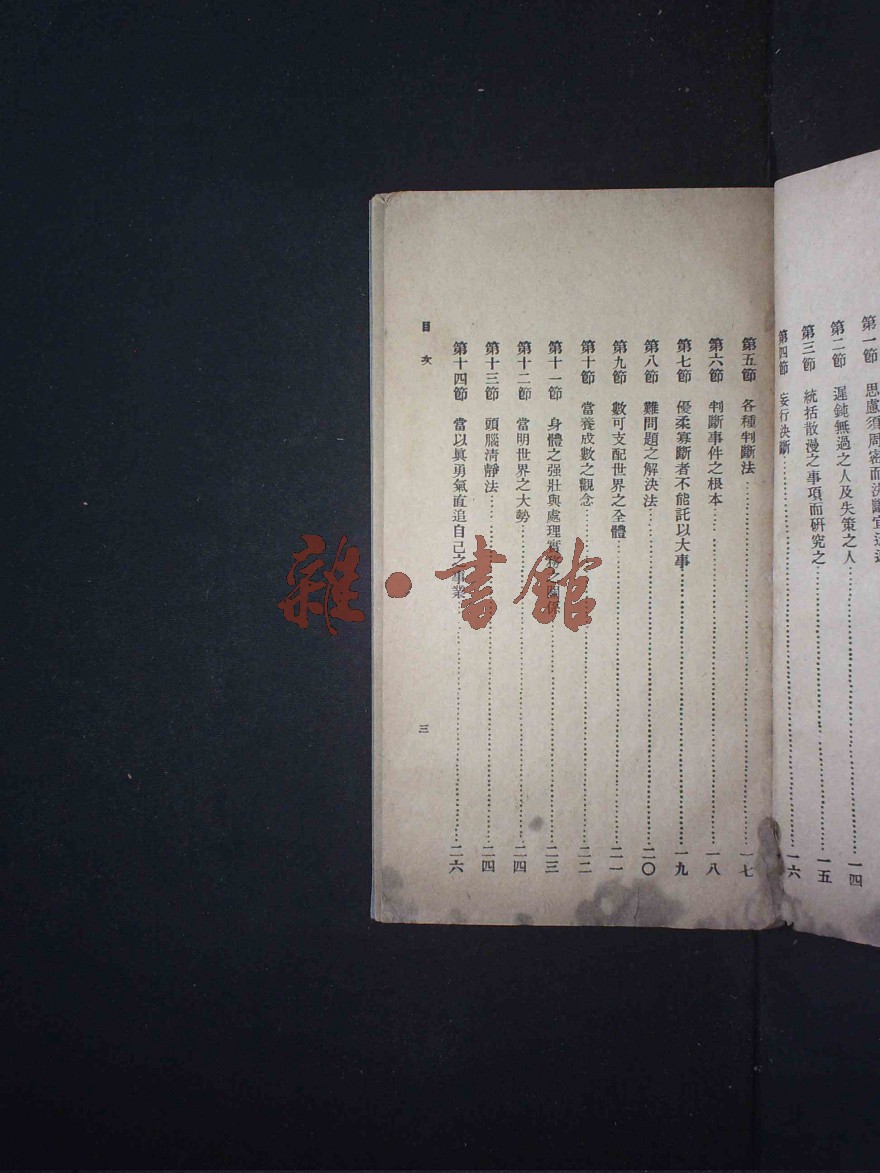 第一節　思慮須周密而決斷宜
第二節　遲鈍無過之人及失策之人…………一四
第三節　統括散漫之事項而研究之…………一五
第四節　妄行決斷…………一六
第五節　各種判斷法…………一七
第六節　判斷事件之根本…………一八
第七節　優柔寡斷者不能託以大事…………一九
第八節　難問題之解決法…………二〇
第九節　數可支配世界之全體…………二一
第十節　當養成數之觀念…………二二
第十一節　身體之强壯與處理實務之關係…………二三
第十二節　當明世界之大勢…………二四
第十三節　頭腦清靜法…………二四
第十四節　當以眞勇氣直追自己之事業…………二六
目次
三
雜·書館